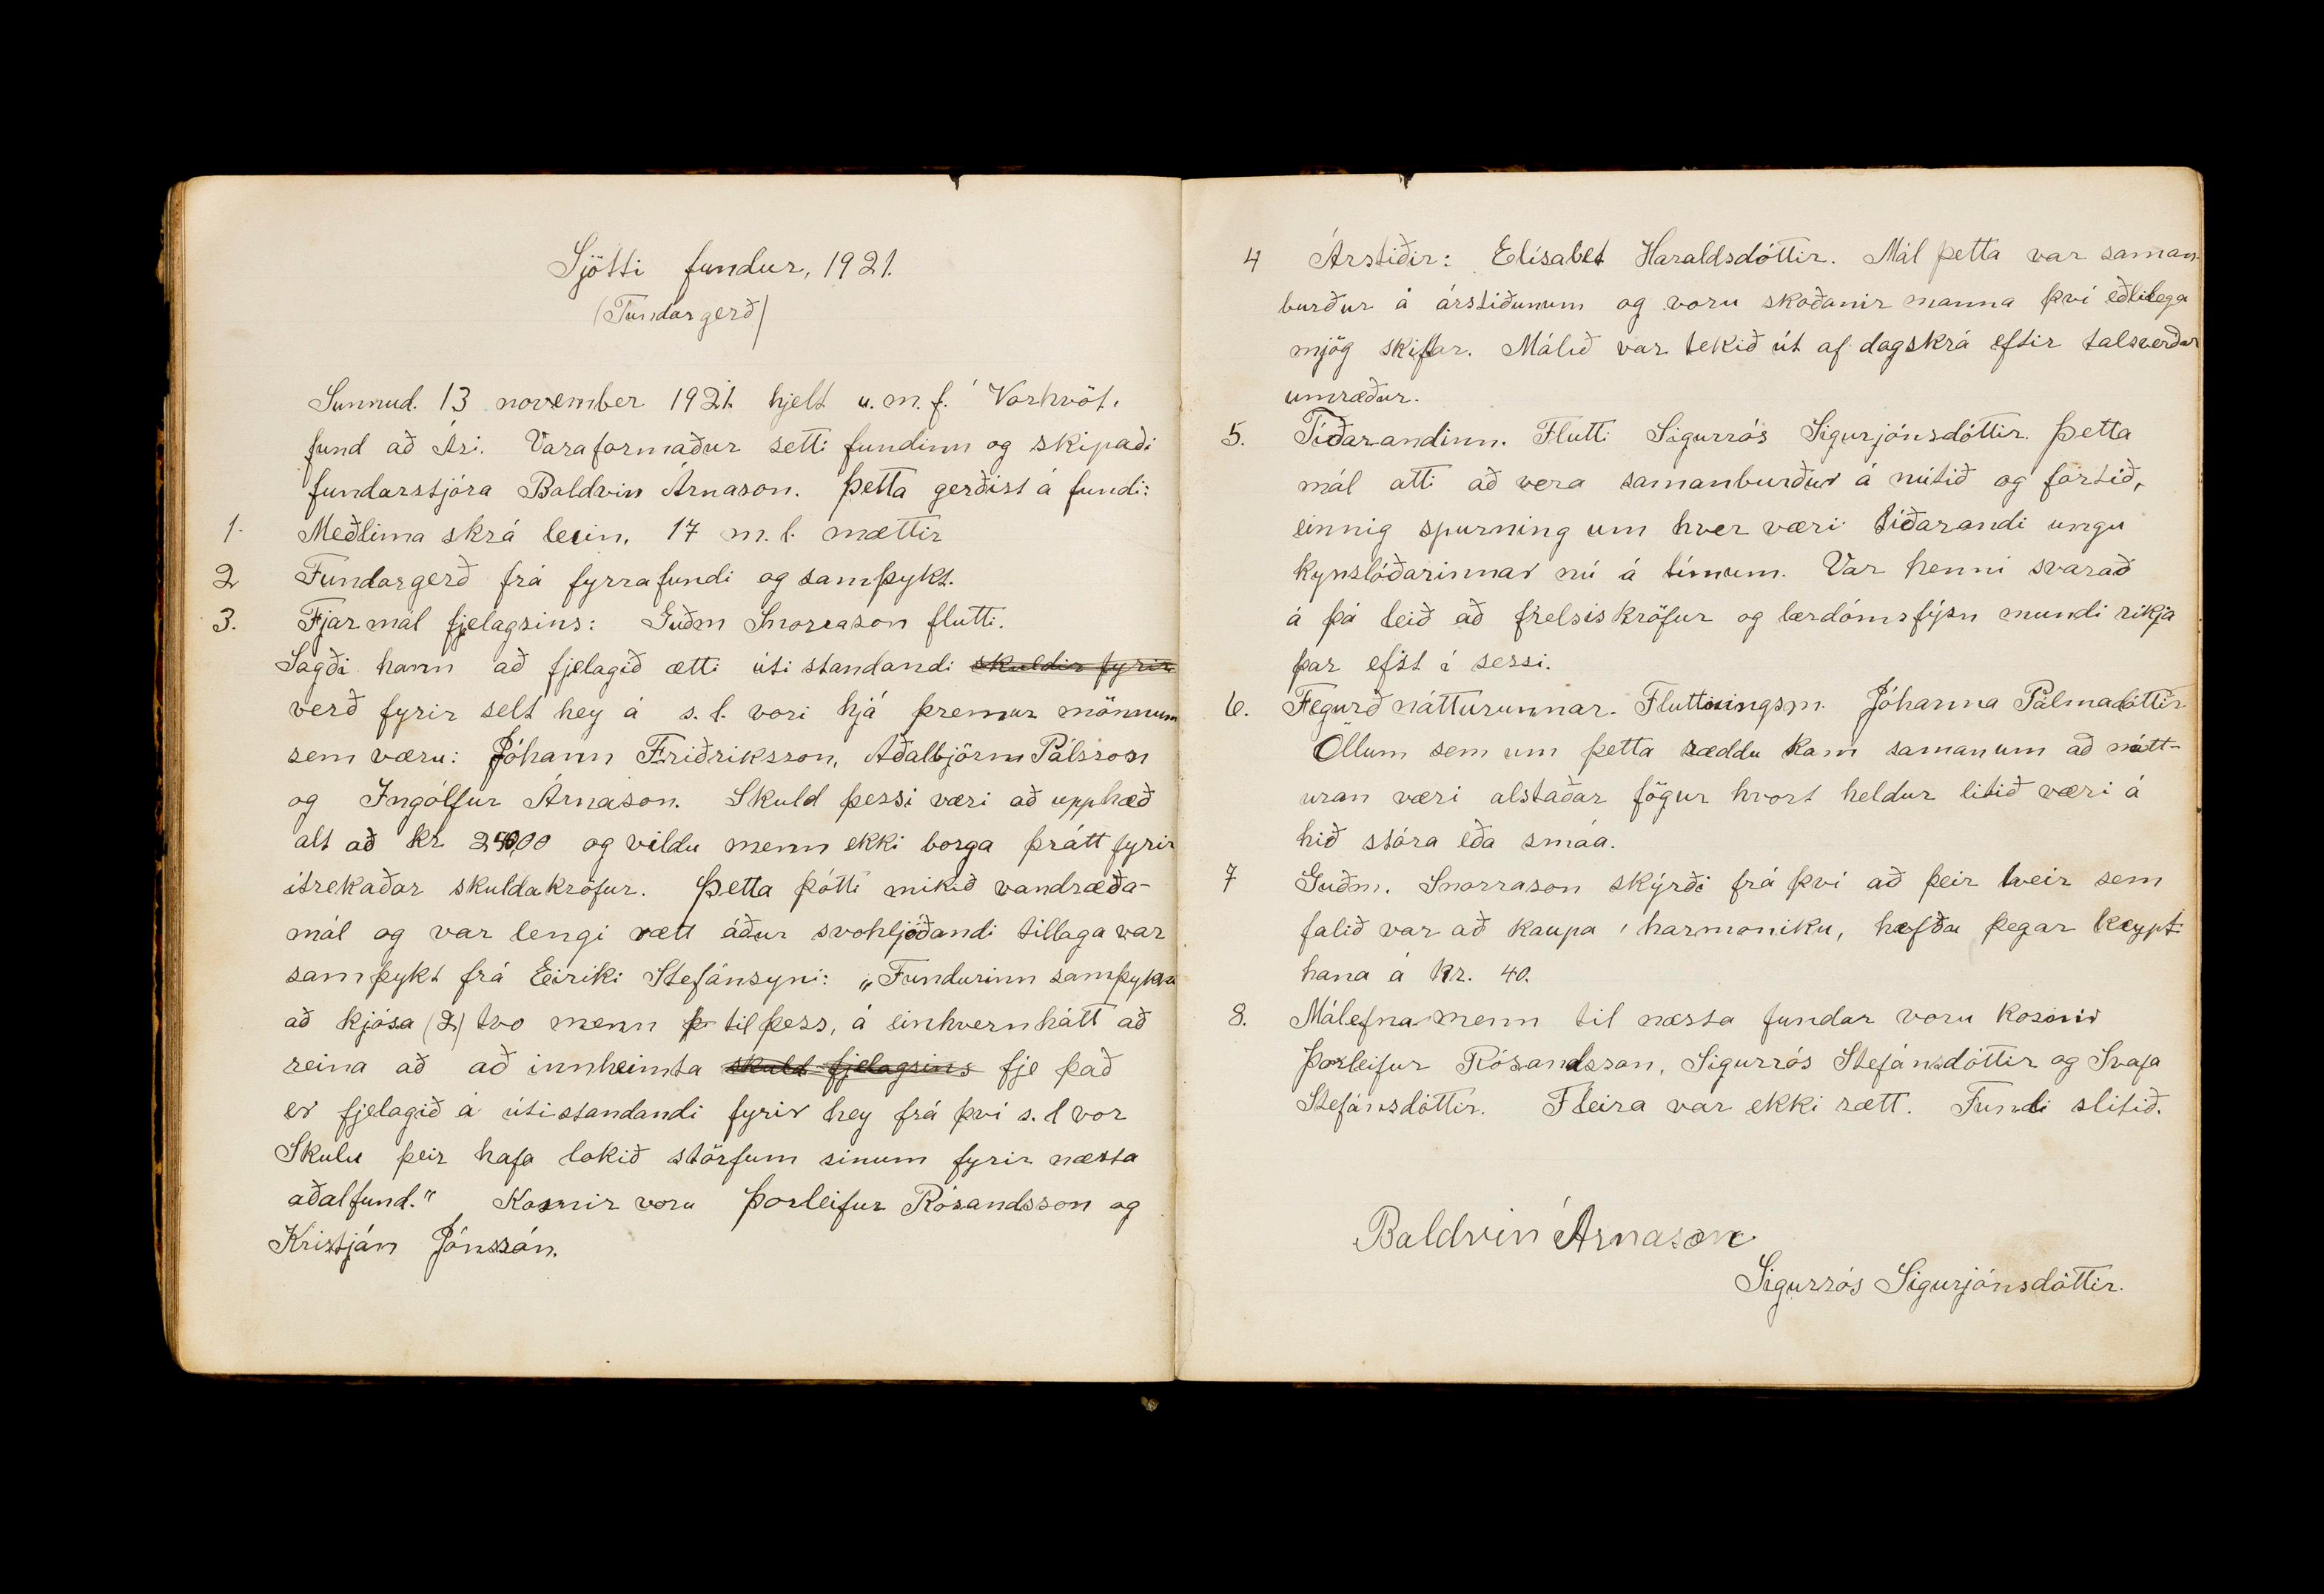 Sjötti fundur, 1921.
(Fundargerð)
Sunnud. 13 november 1921. hjelt u.m.f. Vorhvöt.
fund að Ási. Varaformaður setti fundinn og skipaði
fundarstjóra Baldvin Árnason. Þetta gerðist á fundi:
1. Meðlima skrá lesin, 17 m.l. mættir
2 Fundargerð frá fyrra fundi og samþykt.
3. Fjármál fjelagsins: Guðm Snorrason flutti.
Sagði hann að fjelagið ætti úti standandi skuldir fyrir
verð fyrir selt hey á s.l. vori hjá þremur mönnum
sem væru: Jóhann Friðriksson, Aðalbjörn Pálsson
og Ingólfur Árnason. Skuld þessi væri að upphæð
alt að kr. og vildu menn ekki borga þrátt fyrir
ítrekaðar skuldakröfur. Þetta þótti mikið vandræða-
mál og var lengi rætt áður svohljóðandi tillaga var
samþykt frá Eiriki Stefánsyni: „Fundurinn samþykkir
að kjósa (2) tvo menn þ til þess, á einhvern hátt að
reina að að innheimta skuld fjelagsins fje það
er fjelagið á útistandandi fyrir hey frá því s.l vor
Skulu þeir hafa lokið störfum sínum fyrir næsta
aðalfund." Kosnir voru Þorleifur Rósandsson og
Kristján Jónssón.
4 Árstíðir: Elísabet Haraldsdóttir. Mál þetta var saman-
burður á árstíðunum og voru skoðanir manna því eðlilega
mjög skiftar. Málið var tekið út af dagskrá eftir talsverðar
umræður.
5. Tíðarandinn. Flutti Sigurrós Sigurjónsdóttir. Þetta
mál atti að vera samanburður á nútíð og fortíð,
einnig spurning um hver væri tíðarandi ungu
kynslóðarinnar nú á tímum. Var henni svarað
á þá leið að frelsiskröfur og lærdómsfýsn mundi rikja
þar efst í sessi.
6. Fegurð náttúrunnar. Flutningsm. Jóhanna Pálmadóttir
Öllum sem um þetta ræddu kom saman um að nátt-
uran væri alstaðar fögur hvort heldur litið væri á
hið stóra eða smáa.
7 Guðm. Snorrason skýrði frá því að þeir tveir sem
falið var að kaupa harmoniku, hefðu þegar keypt
hana á kr. 40.
8. Málefnamenn til næsta fundar voru kosnir
Þorleifur Rósandsson, Sigurrós Stefánsdóttir og Svafa
Stefánsdóttir. Fleira var ekki rætt. Fundi slitið.
Baldvin Árnason
Sigurrós Sigurjónsdóttir.